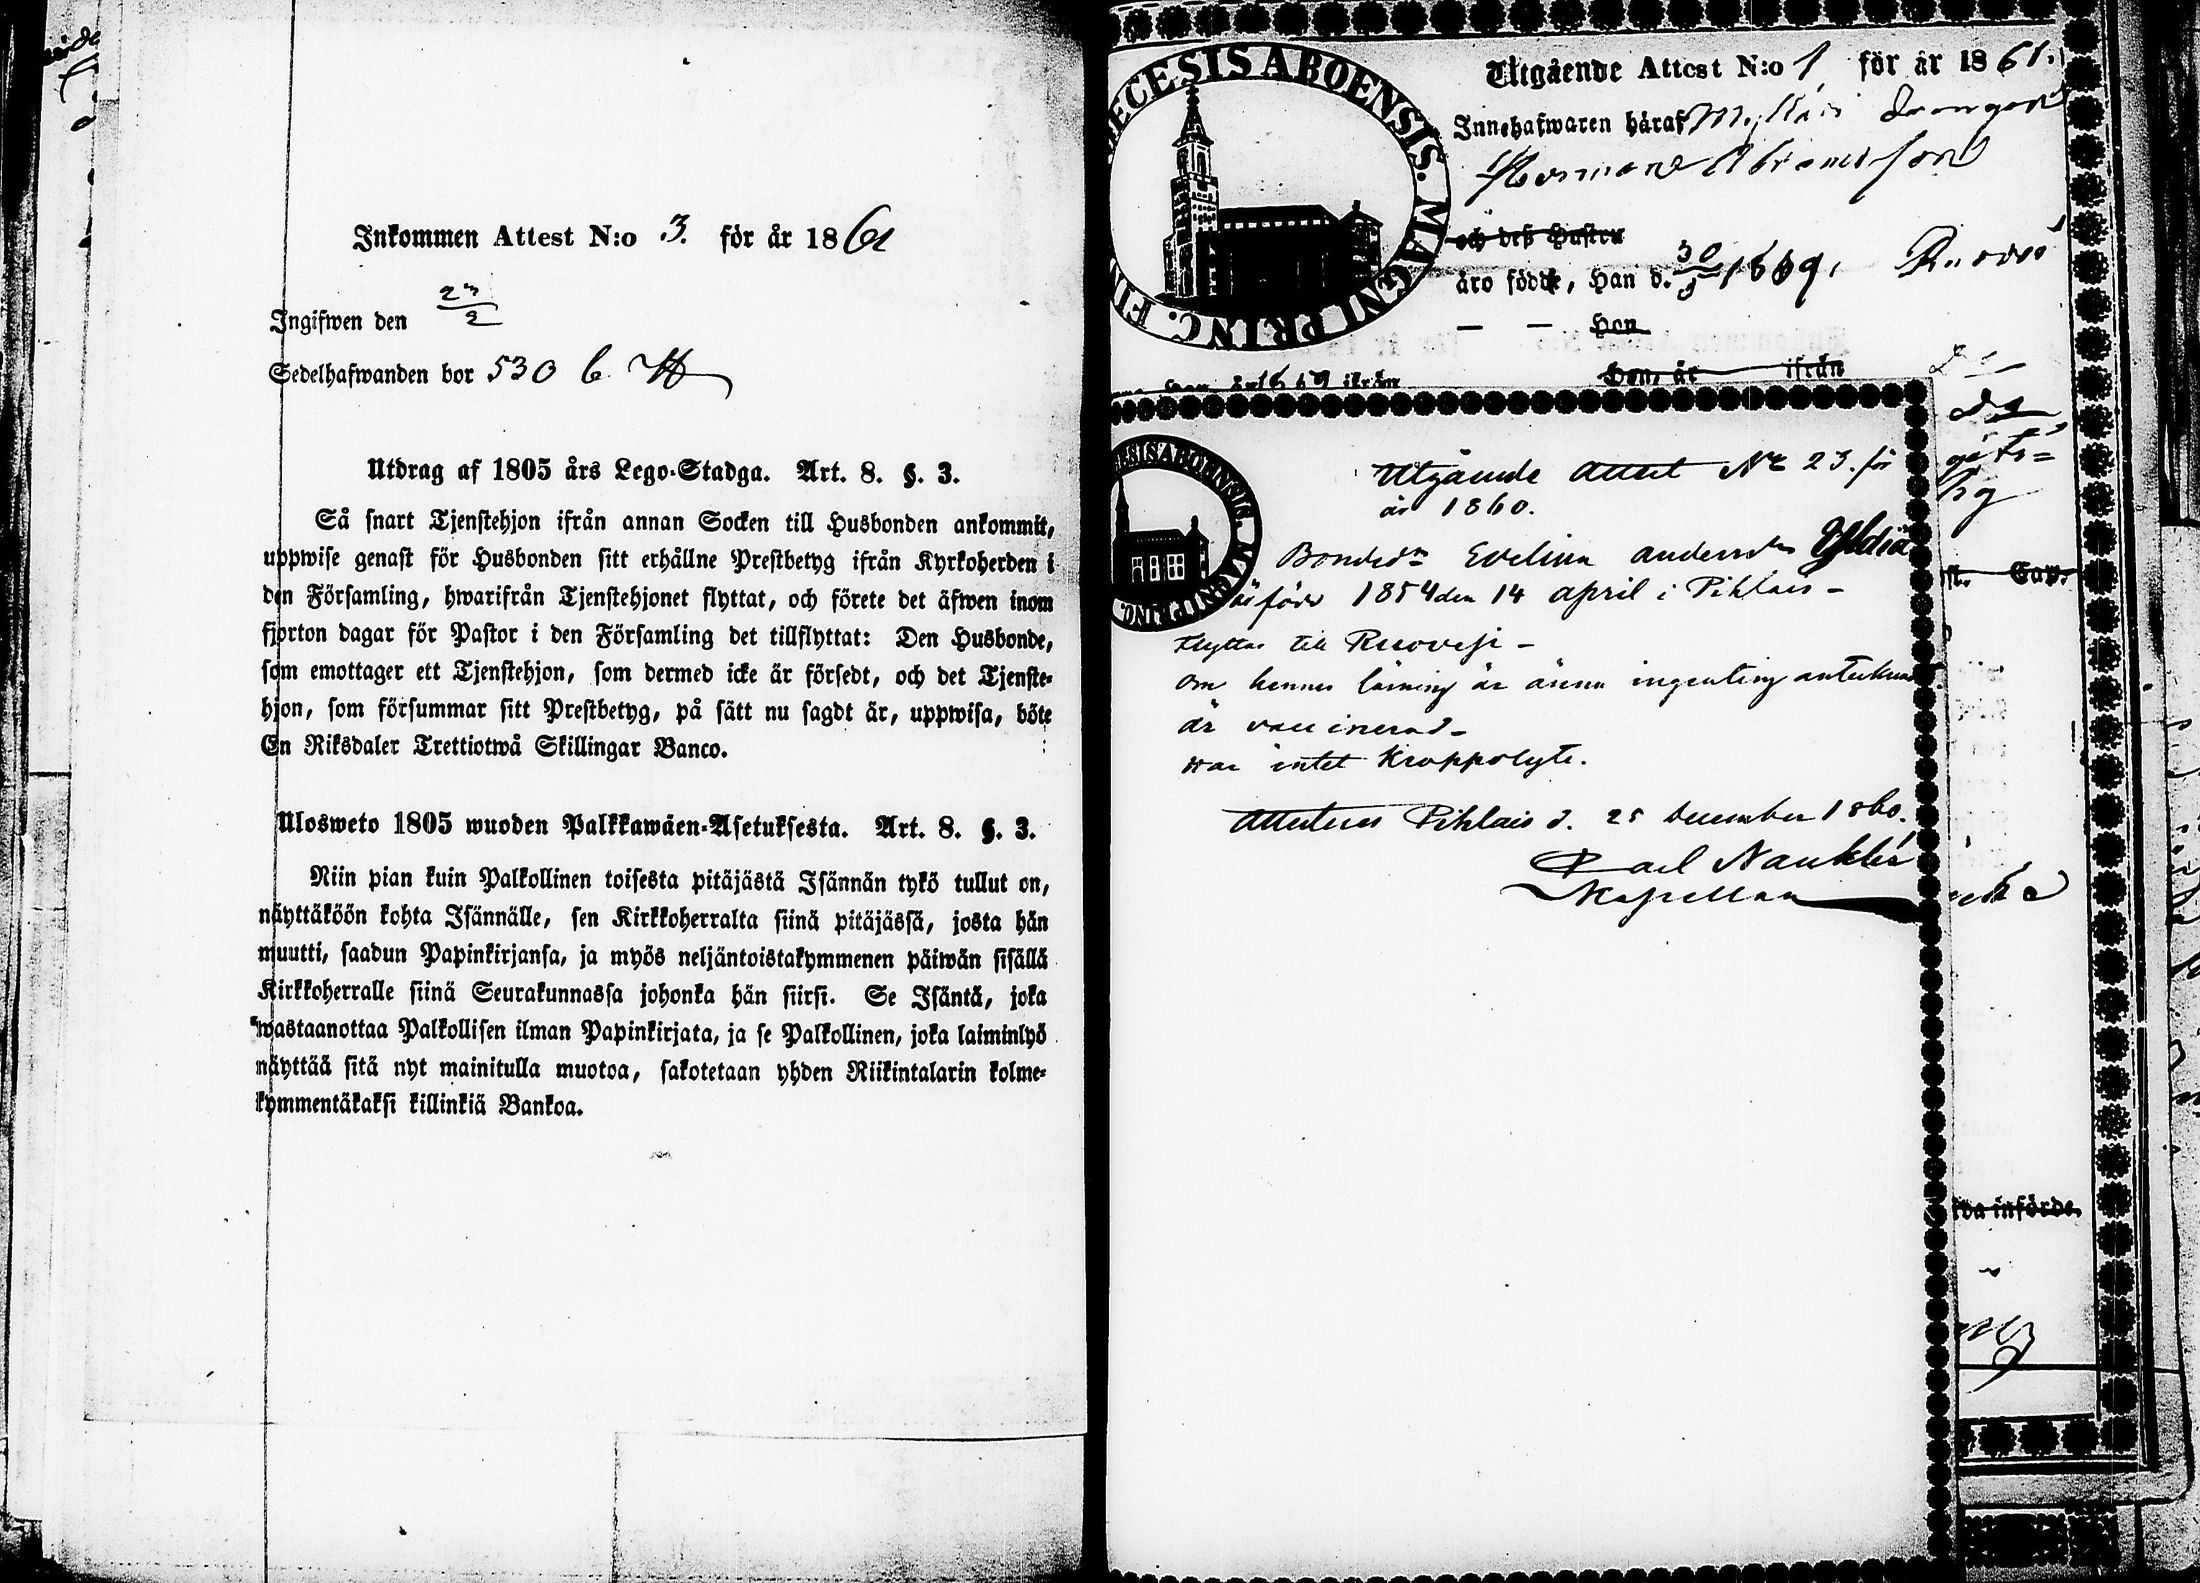 Inkommen Attest N:o 3. för år 1861
Ingifwen den 23/2
Sedelhafwanden bor 530 b
Utdrag af 1805 års Lego-Stadga. Art. 8. §. 3.
Så snart Tjenstehjon ifrån annan Socken till Husbonden ankommit,
uppwise genast för Husbonden sitt erhållne Prestbetyg ifrån Kyrkoherden i
den Församling, hwarifrån Tjenstehjonet flyttat, och förete det äfwen inom
fjorton dagar för Pastor i den Församling det tillflyttat: Den Husbonde,
som emottager ett Tjenstehjon, som dermed icke är försedt, och det Tjenste-
hjon, som försummar sitt Prestbetyg, på sätt nu sagdt är, uppwisa, böte
En Riksdaler Trettiotwå Skillingar Banco.
Ulosweto 1805 wuoden Palkkawäen-Asetuksesta. Art. 8. §. 3.
Niin pian kuin Palkollinen toisesta pitäjästä Isännän tykö tullut on,
näyttäköön kohta Isännälle, sen Kirkkoherralta siinä pitäjässä, josta hän
muutti, saadun Papinkirjansa, ja myös neljäntoistakymmenen päiwän sisällä
Kirkkoherralle siinä Seurakunnassa johonka hän siirsi. Se Isäntä, joka
wastaanottaa Palkollisen ilman Papinkirjata, ja se Palkollinen, joka laiminlyö
näyttää sitä nyt mainitulla muotoa, sakotetaan yhden Riikintalarin kolme-
kymmentäkaksi killinkiä Bankoa.
ECESIS ABOENSIS. MAGNI PRINC. FIN
Utgående Attest N:o 1 för år 1861.
Innehafwaren häraf
Herman Abramsson
och deß Hustru
äro födde, Han d. 30
— — Hon
Hon, är ifrån
ESIS ABOENSIS. MAGNI PRINC.
Utgående Attest No 23. för
år 1860.
Bonded:n Evelina Andersdr Yldiä
är född 1854 den 14 april i Pihlais –
flyttar till Ruovesi –
om hennes läsning är ännu ingenting antecknadt.
är vaccinerad –
har intet kroppslyte.
Attesteras Pihlais d. 25 december 1860.
Carl Nauklér
Kapellan
st. Cap.
införde.